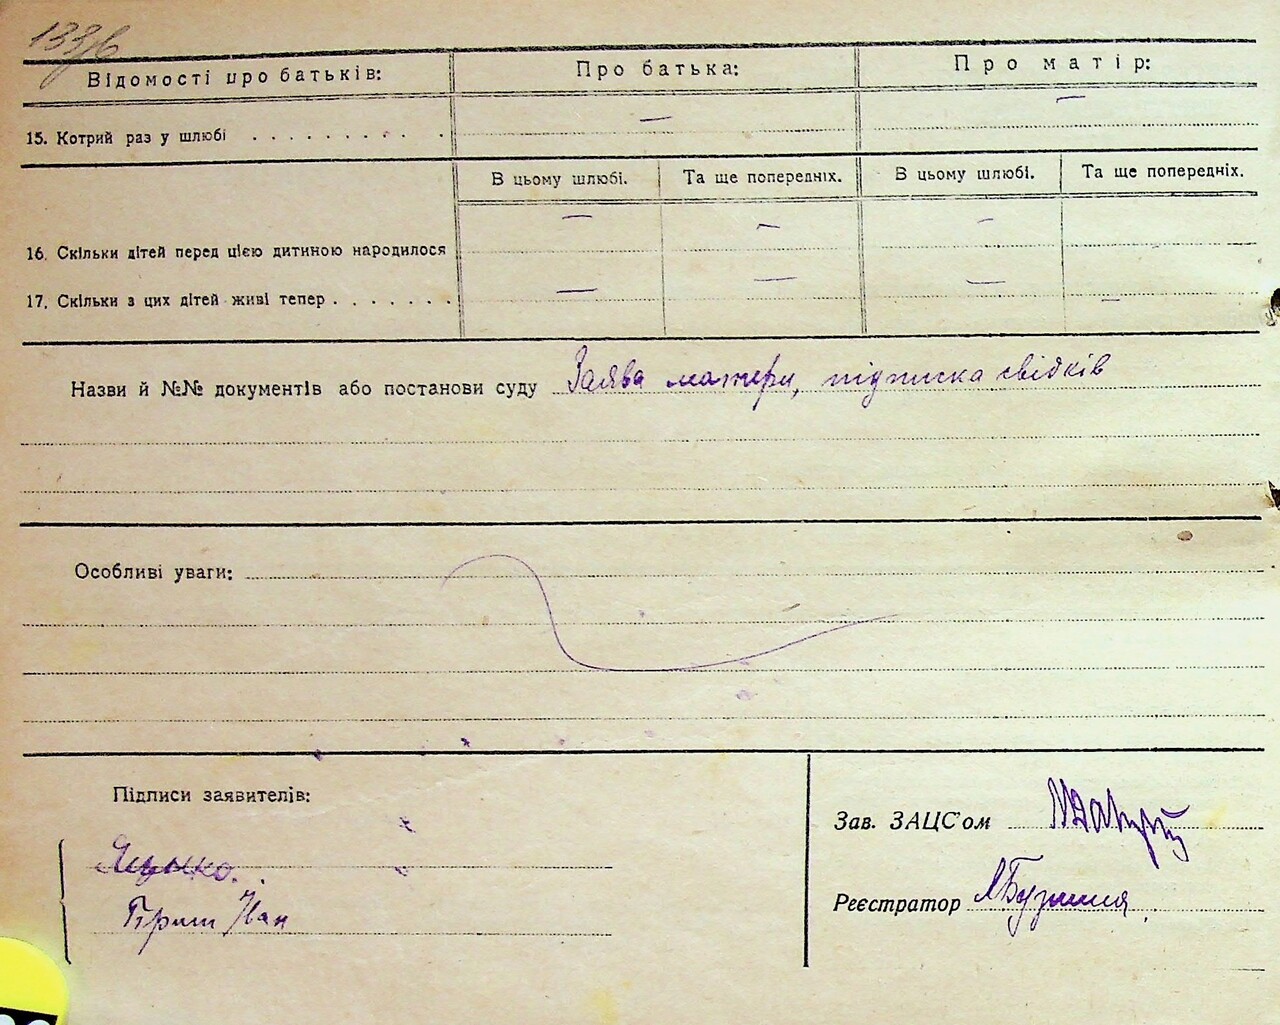 133б
Відомості про батьків: Про батька: Про матір:
15. Котрий раз у шлюбі . . . . . . . . . . — —
В цьому шлюбі. Та ще попередніх. В цьому шлюбі. Та ще попередніх.
16. Скільки дітей перед цією дитиною народилося — — —
17. Скільки з цих дітей живі тепер . . . . . . . — — — —
Назви й №№ документів або постанови суду Заява матери, підписка свідків
Особливі уваги:
Підписи заявителів:
Зав. ЗАЦС'ом
Іван
Реєстратор